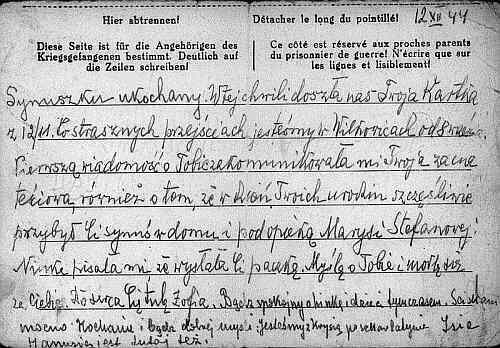 12 XII 44
Hier abtrennen!
Détacher le long du pointillé!
Diese Seite ist für die Angehörigen des
Kriegsgefangenen bestimmt. Deutlich auf
die Zeilen schreiben!
Ce côté est réservé aux proches parents
du prisonnier de guerre! N'écrire que sur
les lignes et lisiblement!
Synuszku ukochany. W tej chwili doszła nas Twoja Kartka
z 13/11. Po strasznych przejściach jesteśmy w Wilkowicach od
Pierwszą wiadomość o Tobie zakomunikowała mi Twoja zacna
teściowa, również o tem, że w dzień Twoich urodzin szczęśliwie
przybył Ci synuś w domu i pod opieką Marysi Stefanowej.
Ninka pisała mi że wysłała Ci paczkę. Myślę o Tobie i modlę się
za Ciebie. Zofia. Bądź spokojny o Ninkę i dzieci tymczasem.
mocno. Kochanie bądź dobrej myśli jesteśmy z Krysią
Hanusia jest tutaj też.